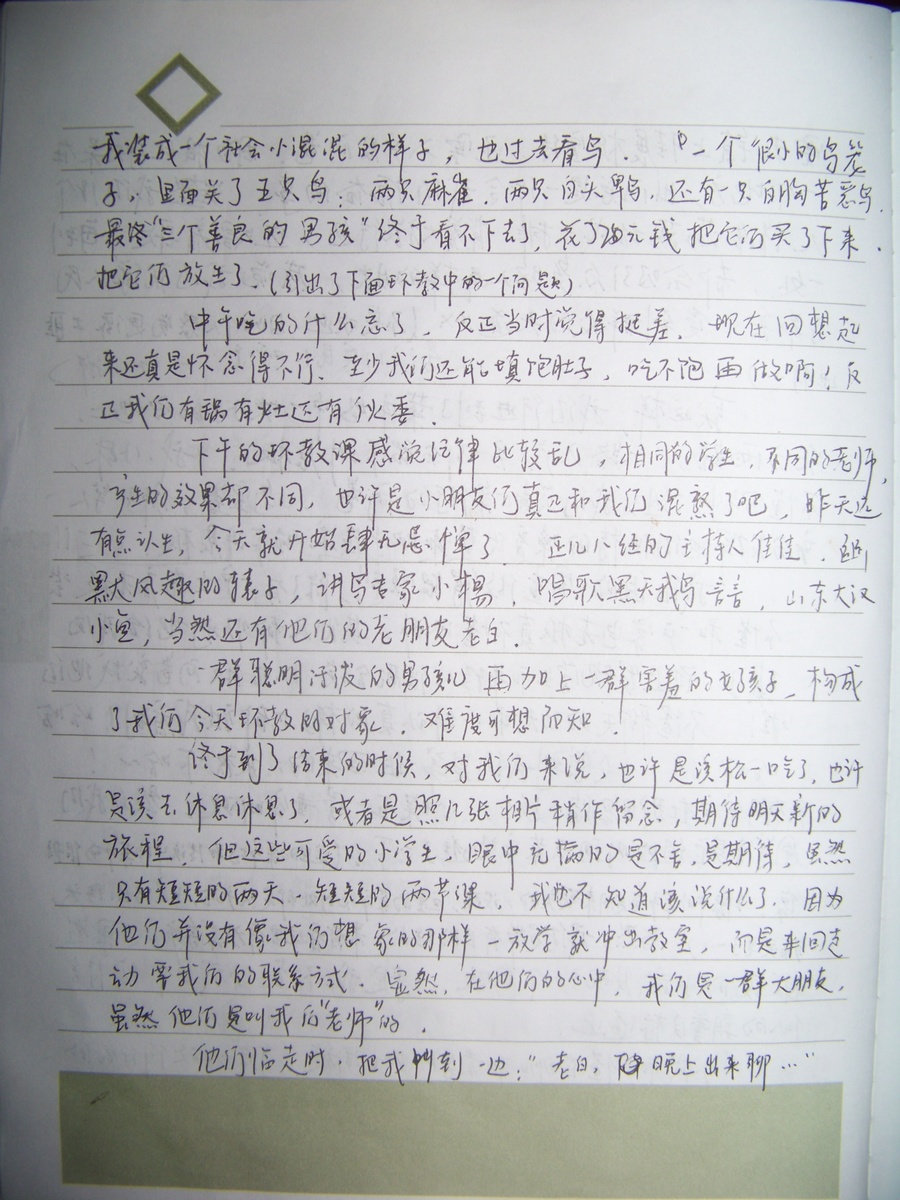 我装成一个社会小混混的样子，也过去看鸟．一个很小的鸟笼
子，里面关了五只鸟：两只麻雀．两只白头鹎，还有一只白胸苦恶鸟．
最终"三个善良的男孩"终于看不下去了，花了25元钱把它们买了下来．
把它们放生了．（引出了下面环教中的一个问题）
中午吃的什么忘了，反正当时觉得挺差．现在回想起
来还真是怀念得不行、至少我们还能填饱肚子，吃不饱再做啊！反
正我们有锅有灶还有伙委．
下午的环教课感觉纪律比较乱，相同的学生，不同的老师，
产生的效果都不同，也许是小朋友们真正和我们混熟了吧，昨天还
有点认生，今天就开始肆无忌惮了．正儿八经的主持人佳佳．幽
默风趣的辕子，讲鸟专家小杨．唱歌黑天鹅鸟言言，山东大汉
小鱼，当然还有他们的老朋友老白．
一群聪明活泼的男孩儿再加上一群害羞的女孩子，构成
了我们今天环教的对象．难度可想而知．
终于到了结束的时候，对我们来说，也许是该松一口气了，也许
是该去休息休息了，或者是照几张相片稍作留念，期待明天新的
旅程．但这些可爱的小学生，眼中充满的是不舍，是期待，虽然
只有短短的两天，短短的两节课，我也不知道该说什么了．因为
他们并没有像我们想象的那样一放学就冲出教室，而是来回走
动要我们的联系方式．显然，在他们的心中，我们是一群大朋友，
虽然他们是叫我们"老师"的．
他们临走时，把我叫到一边："老白，晚上出来聊…"